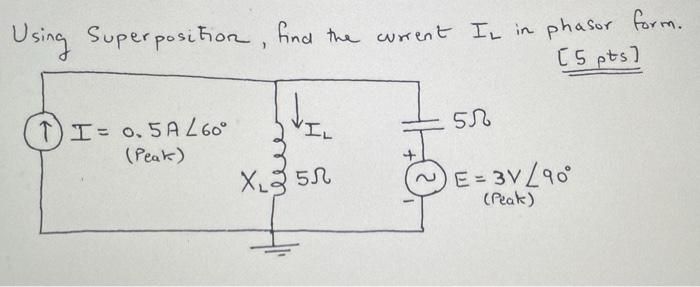 Using Superposition, find the current IL in phasor form.
[5 pts]
I = 0.5A∠60°
(Peak)
↓IL
XL 5Ω
5Ω
+
E = 3V∠90°
(Peak)
-